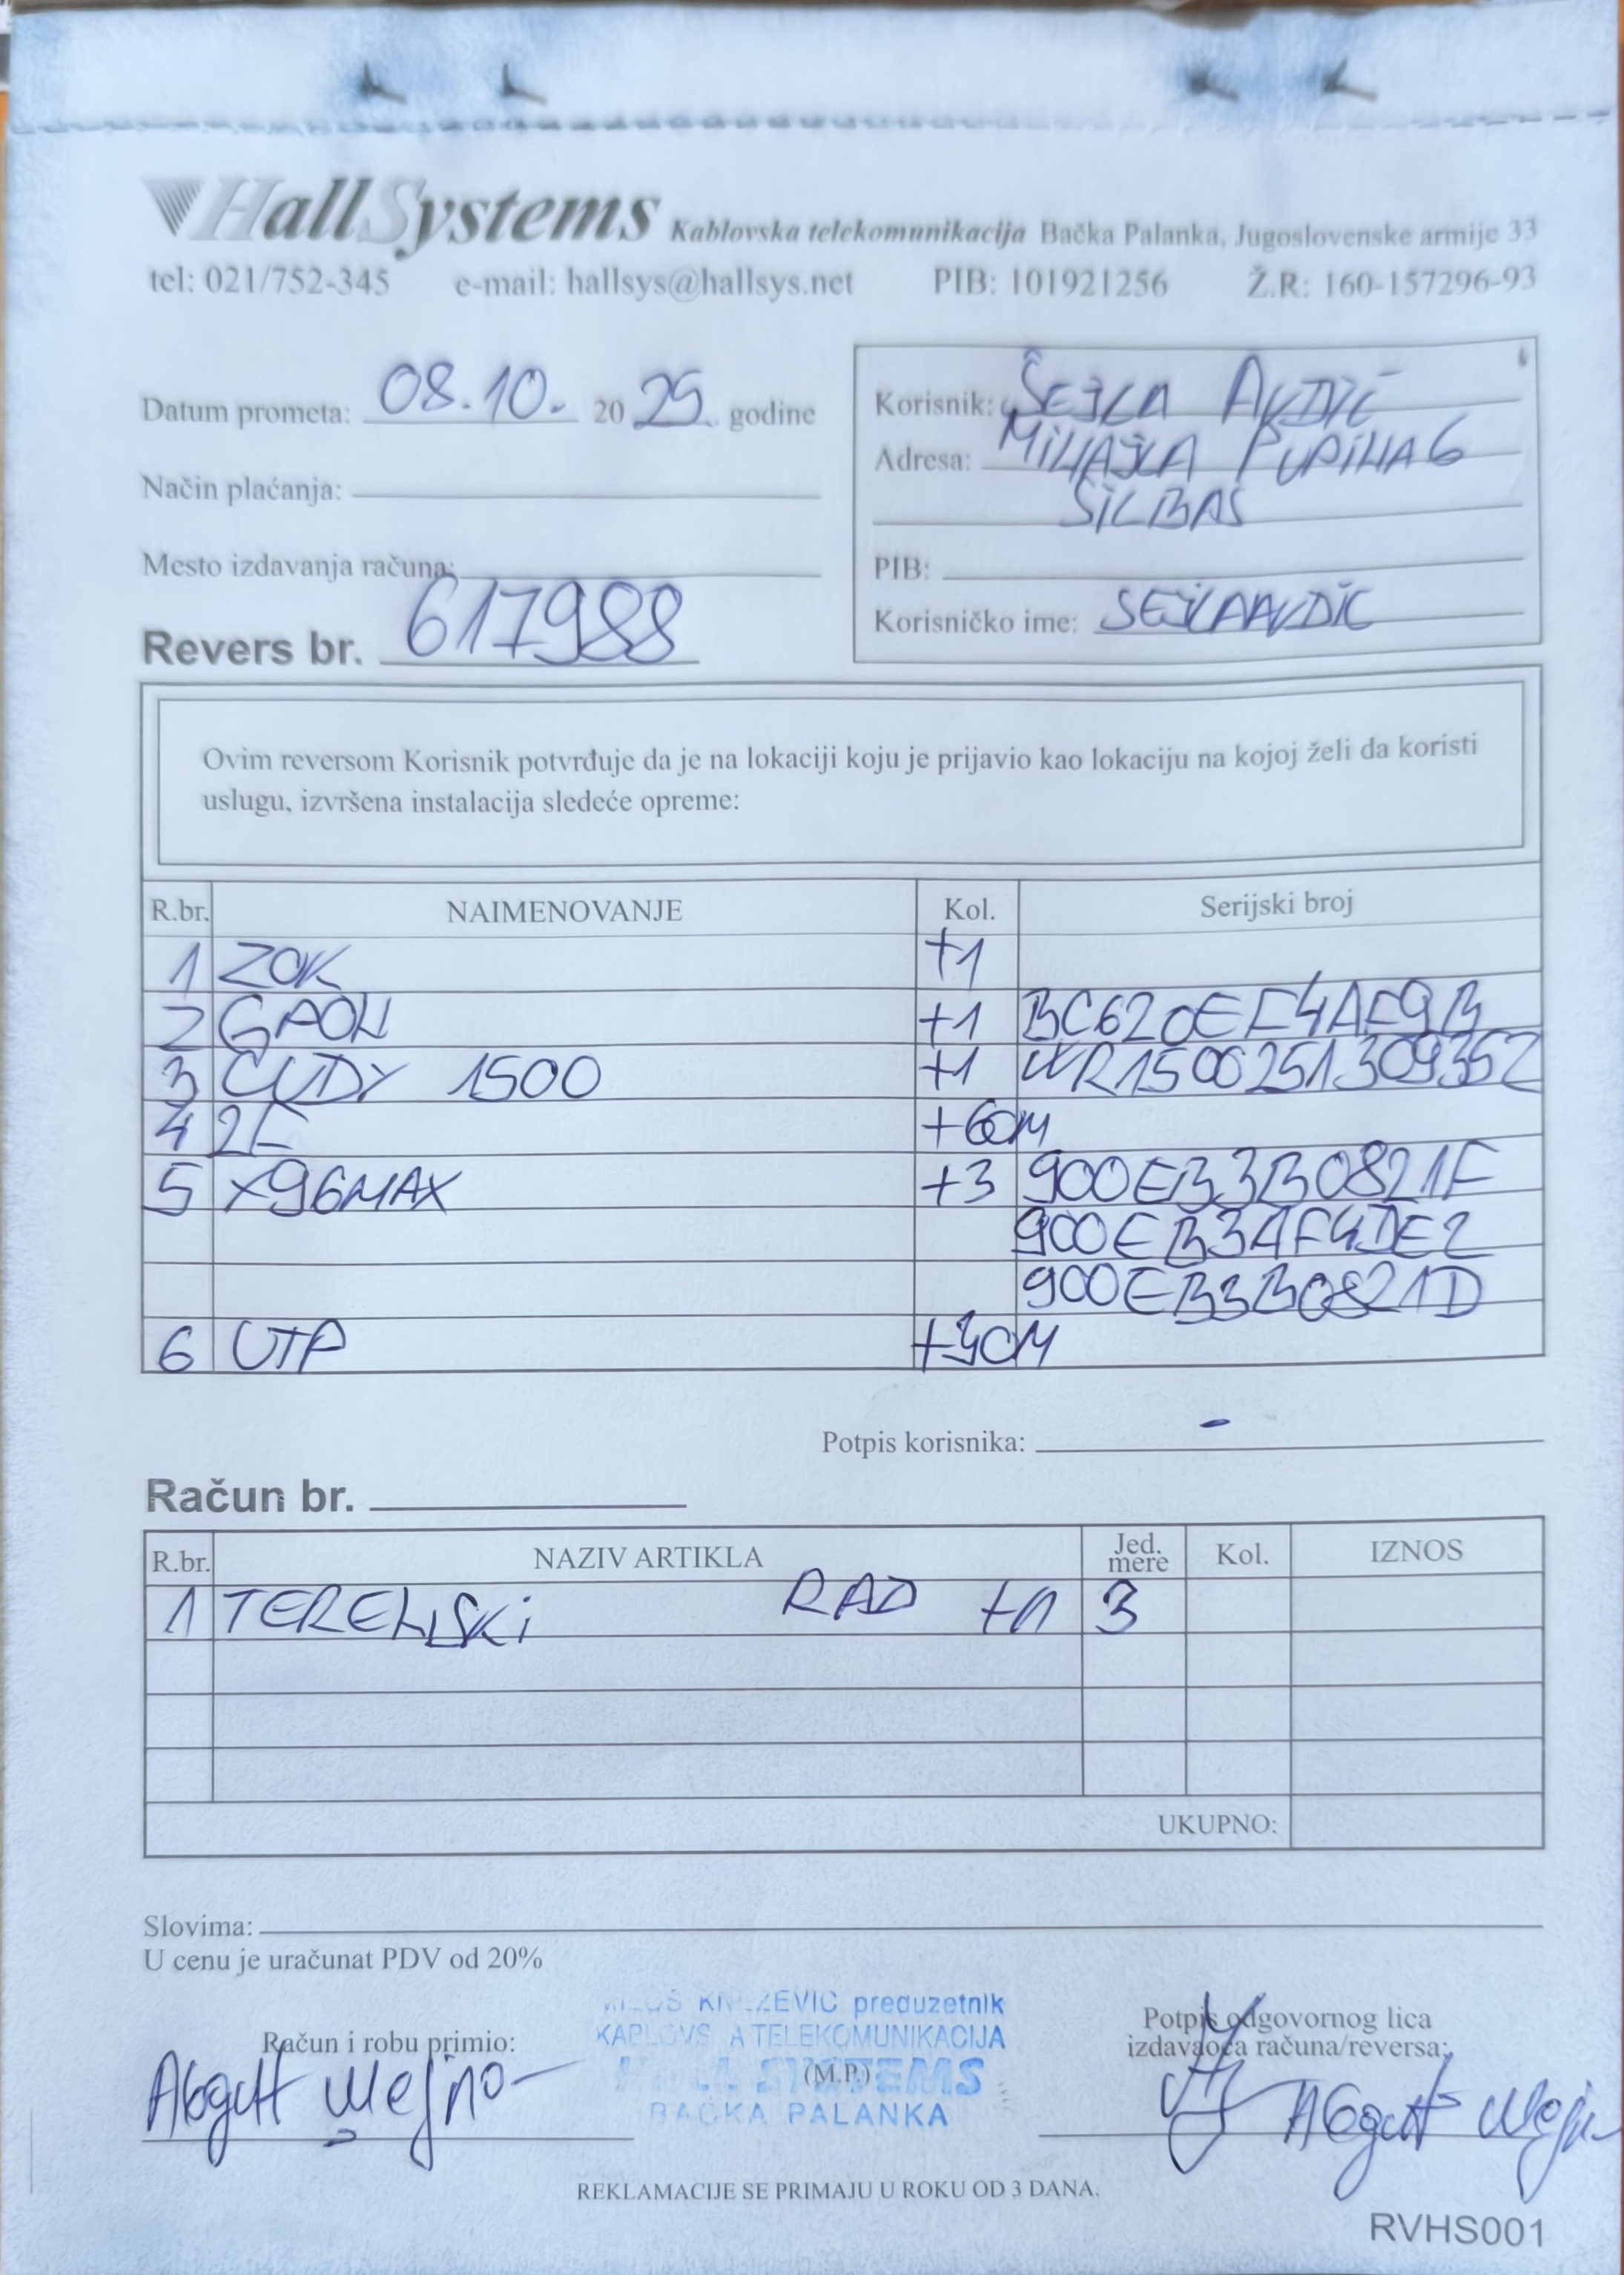 HallSystems Kablovska telekomunikacija Bačka Palanka, Jugoslovenske armije 33
tel: 021/752-345 e-mail: hallsys@hallsys.net PIB: 101921256 Ž.R: 160-157296-93
Datum prometa: 08.10. 2025. godine
Način plaćanja:
Mesto izdavanja računa:
Revers br. 617988
Korisnik: ŠEJLA AVDIĆ
Adresa: MIHAJLA PUPINA 6
SILBAŠ
PIB:
Korisničko ime: SEJLAAVDIC
Ovim reversom Korisnik potvrđuje da je na lokaciji koju je prijavio kao lokaciju na kojoj želi da koristi
uslugu, izvršena instalacija sledeće opreme:
R.br. NAIMENOVANJE Kol. Serijski broj
1 ZOK +1
2 GAON +1 BC620EF4AF9B
3 CUDY 1500 +1 WR1500251309352
4 2F +60M
5 X96MAX +3 900EB3B0821F
900EB3AF4DE2
900EB3B0821D
6 UTP +30M
Potpis korisnika: -
Račun br.
R.br. NAZIV ARTIKLA Jed. mere Kol. IZNOS
1 TERENSKI RAD +1 3
UKUPNO:
Slovima:
U cenu je uračunat PDV od 20%
Račun i robu primio:
KNEZEVIC preduzetnik
TELEKOMUNIKACIJA
(M.P.)
SYSTEMS
BAČKA PALANKA
Potpis odgovornog lica
izdavaoca računa/reversa:
REKLAMACIJE SE PRIMAJU U ROKU OD 3 DANA.
RVHS001